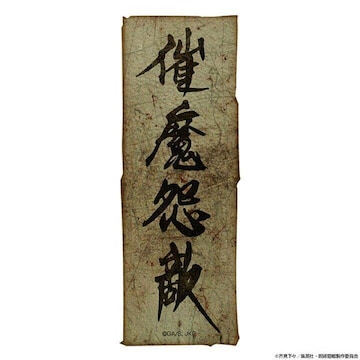 催魔怨敵
©GA/S, JKP
©芥見下々／集英社・呪術廻戦製作委員会